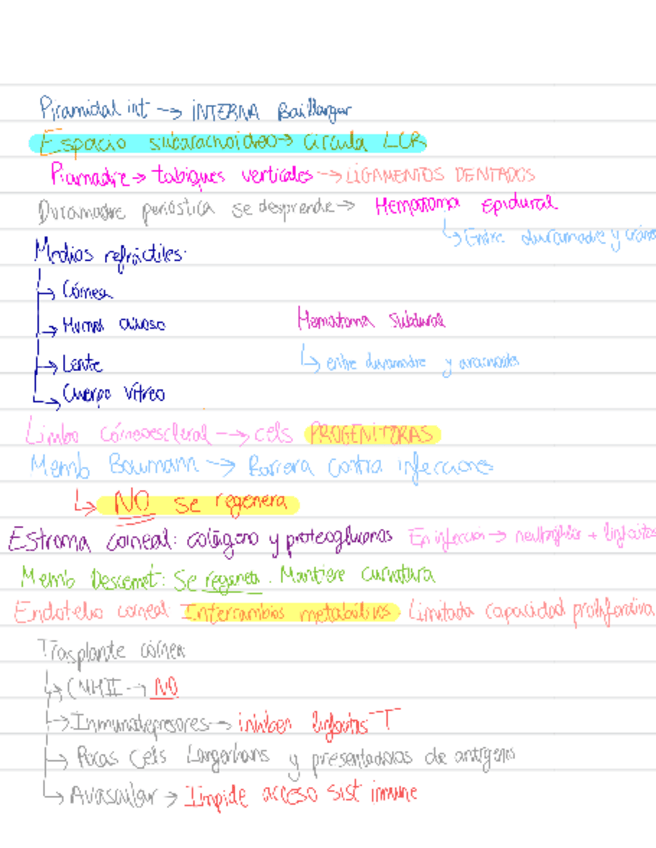 Piramidal int → INTERNA Baillarger
Espacio subaracnoideo → circula LCR
Piamadre → tabiques verticales → LIGAMENTOS DENTADOS
Duramadre perióstica se desprende → Hematoma epidural
↳ Entre duramadre y cráneo
Medios refráctiles:
→ Córnea
→ Humor acuoso
Hematoma subdural
→ Lente
↳ entre duramadre y aracnoides
↳ Cuerpo vítreo
Limbo corneoescleral → cels PROGENITORAS
Memb Bowmann → Barrera contra infecciones
↳ NO se regenera
Estroma corneal: colágeno y proteoglucanos En infección → neutrófilos + linfocitos
Memb Descemet: Se regenera. Mantiene curvatura
Endotelio corneal Intercambios metabólicos. Limitada capacidad proliferativa
Trasplante córnea
→ CMHII → NO
→ Inmunodepresores → inhiben linfocitos T
→ Pocas Cels Langerhans y presentadoras de antígeno
↳ Avascular → Impide acceso sist inmune